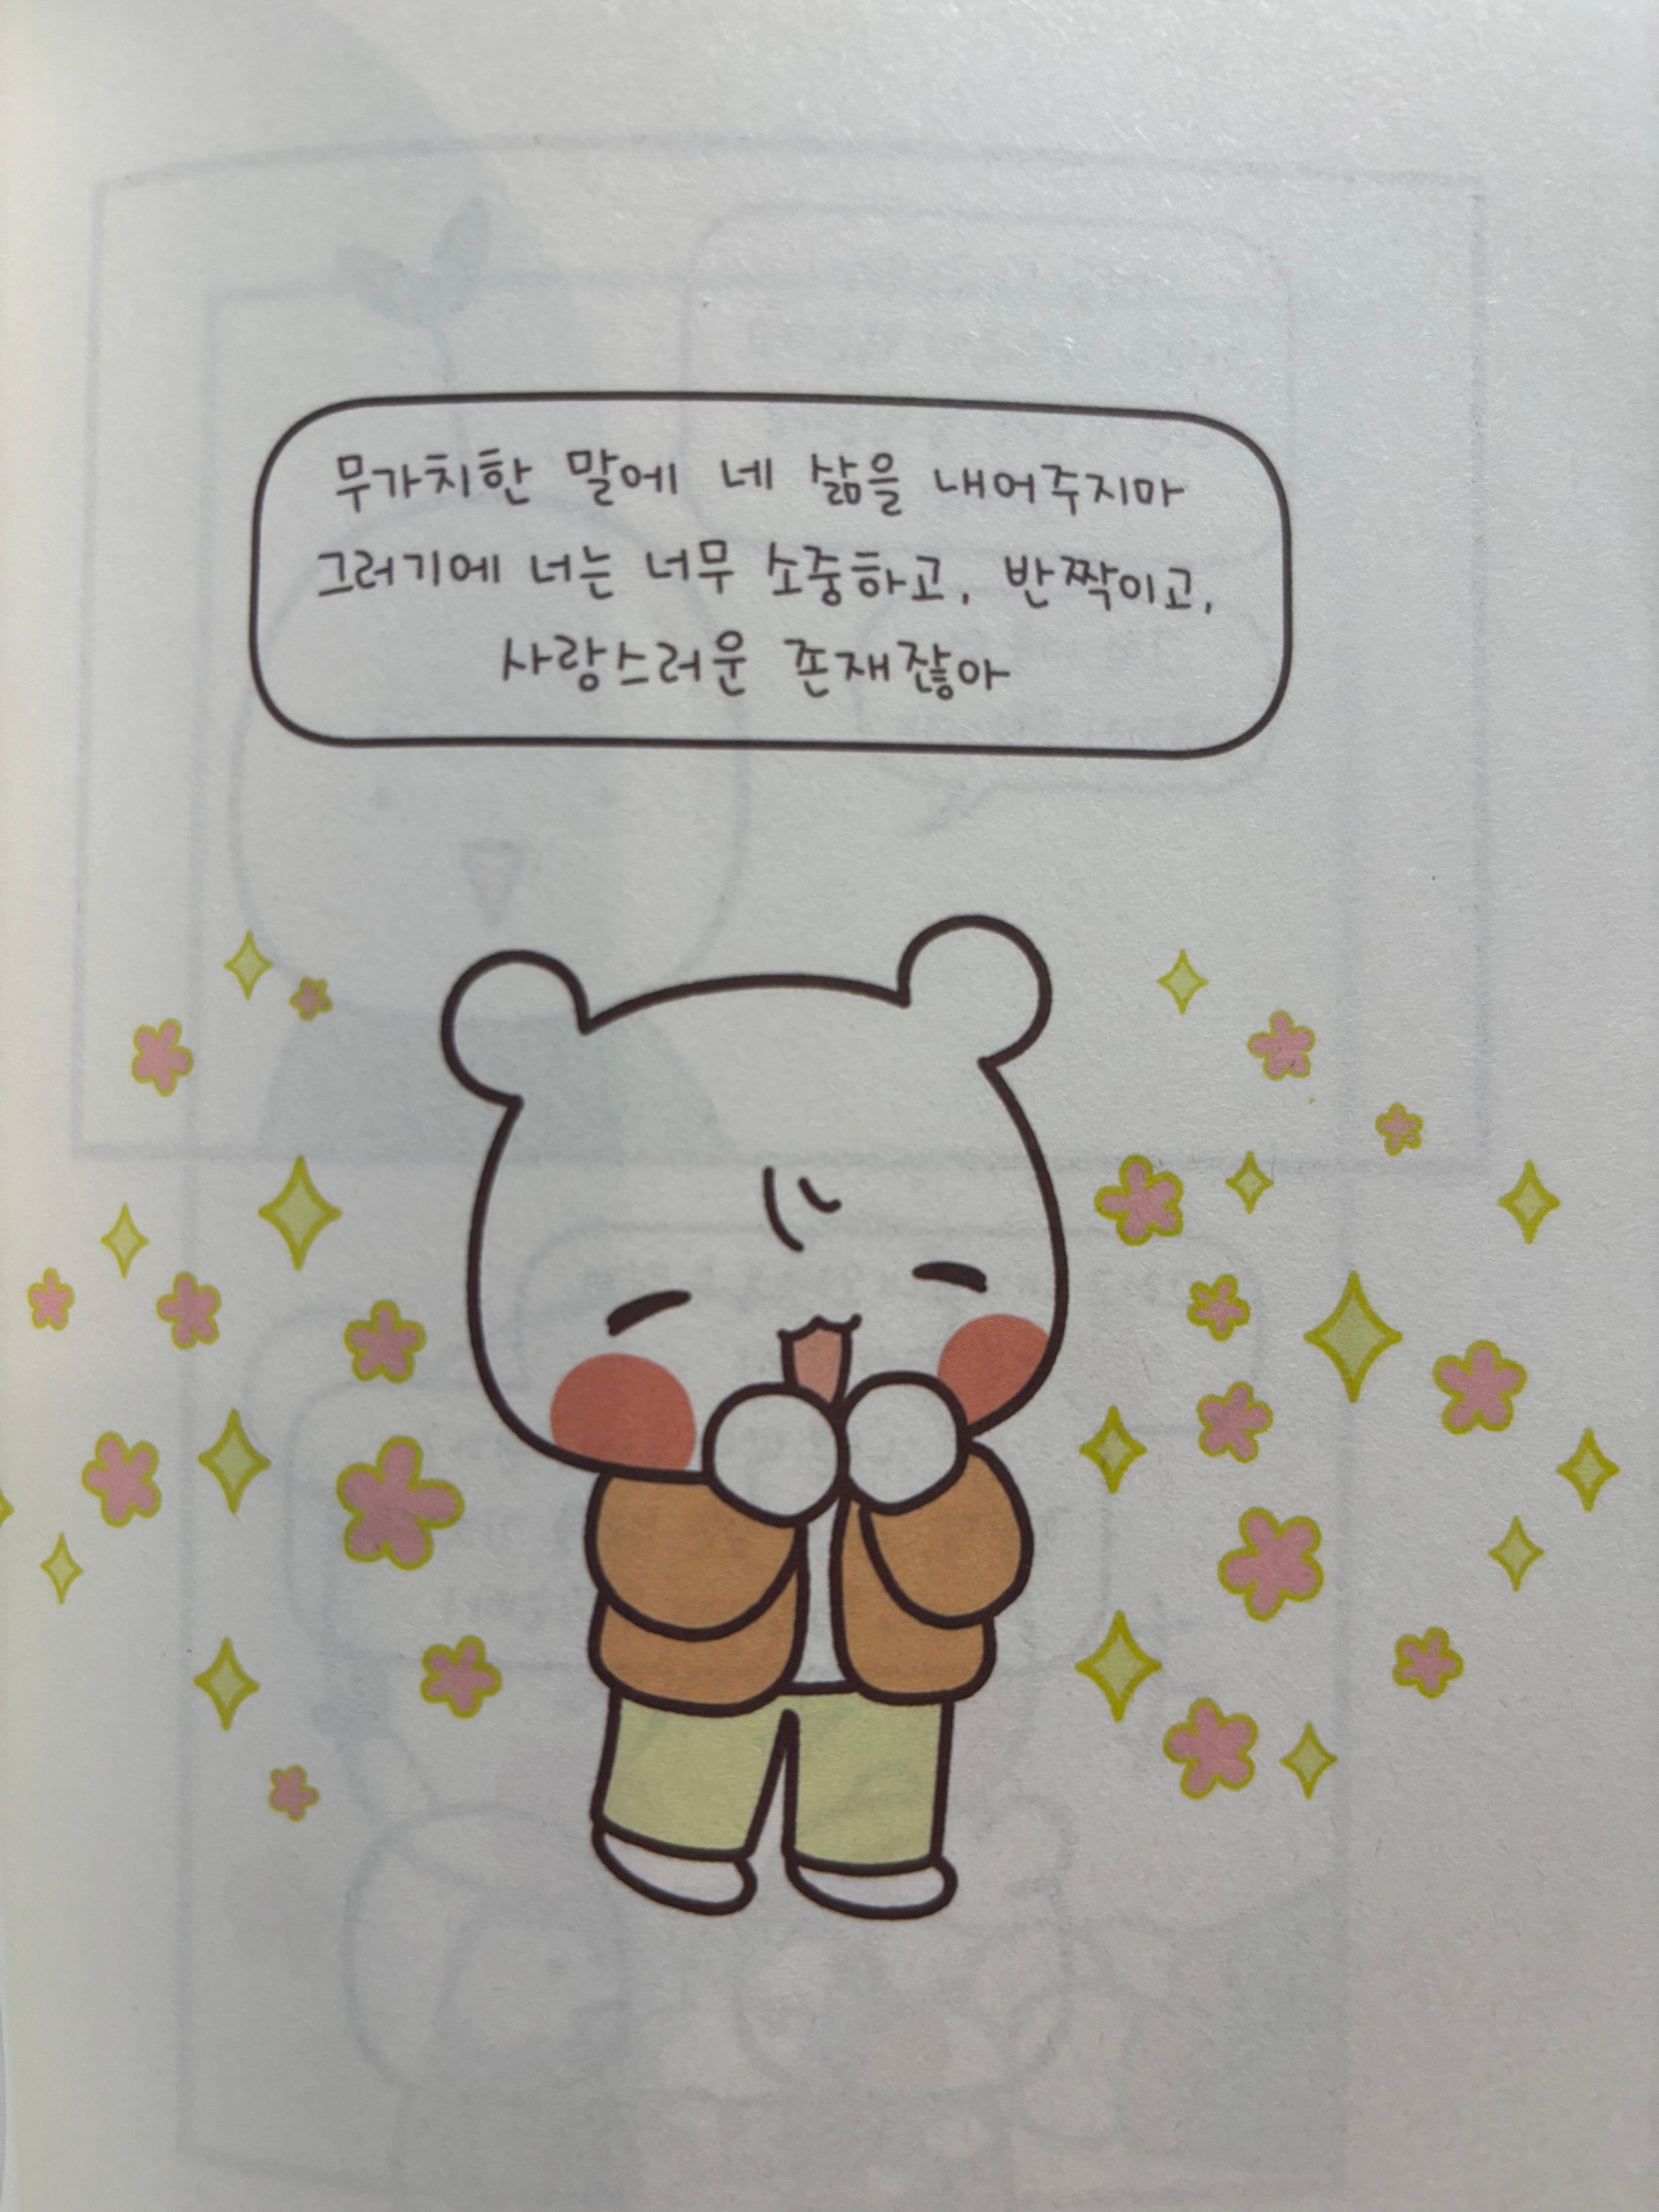 무가치한 말에 네 삶을 내어주지마
그러기에 너는 너무 소중하고, 반짝이고,
사랑스러운 존재잖아